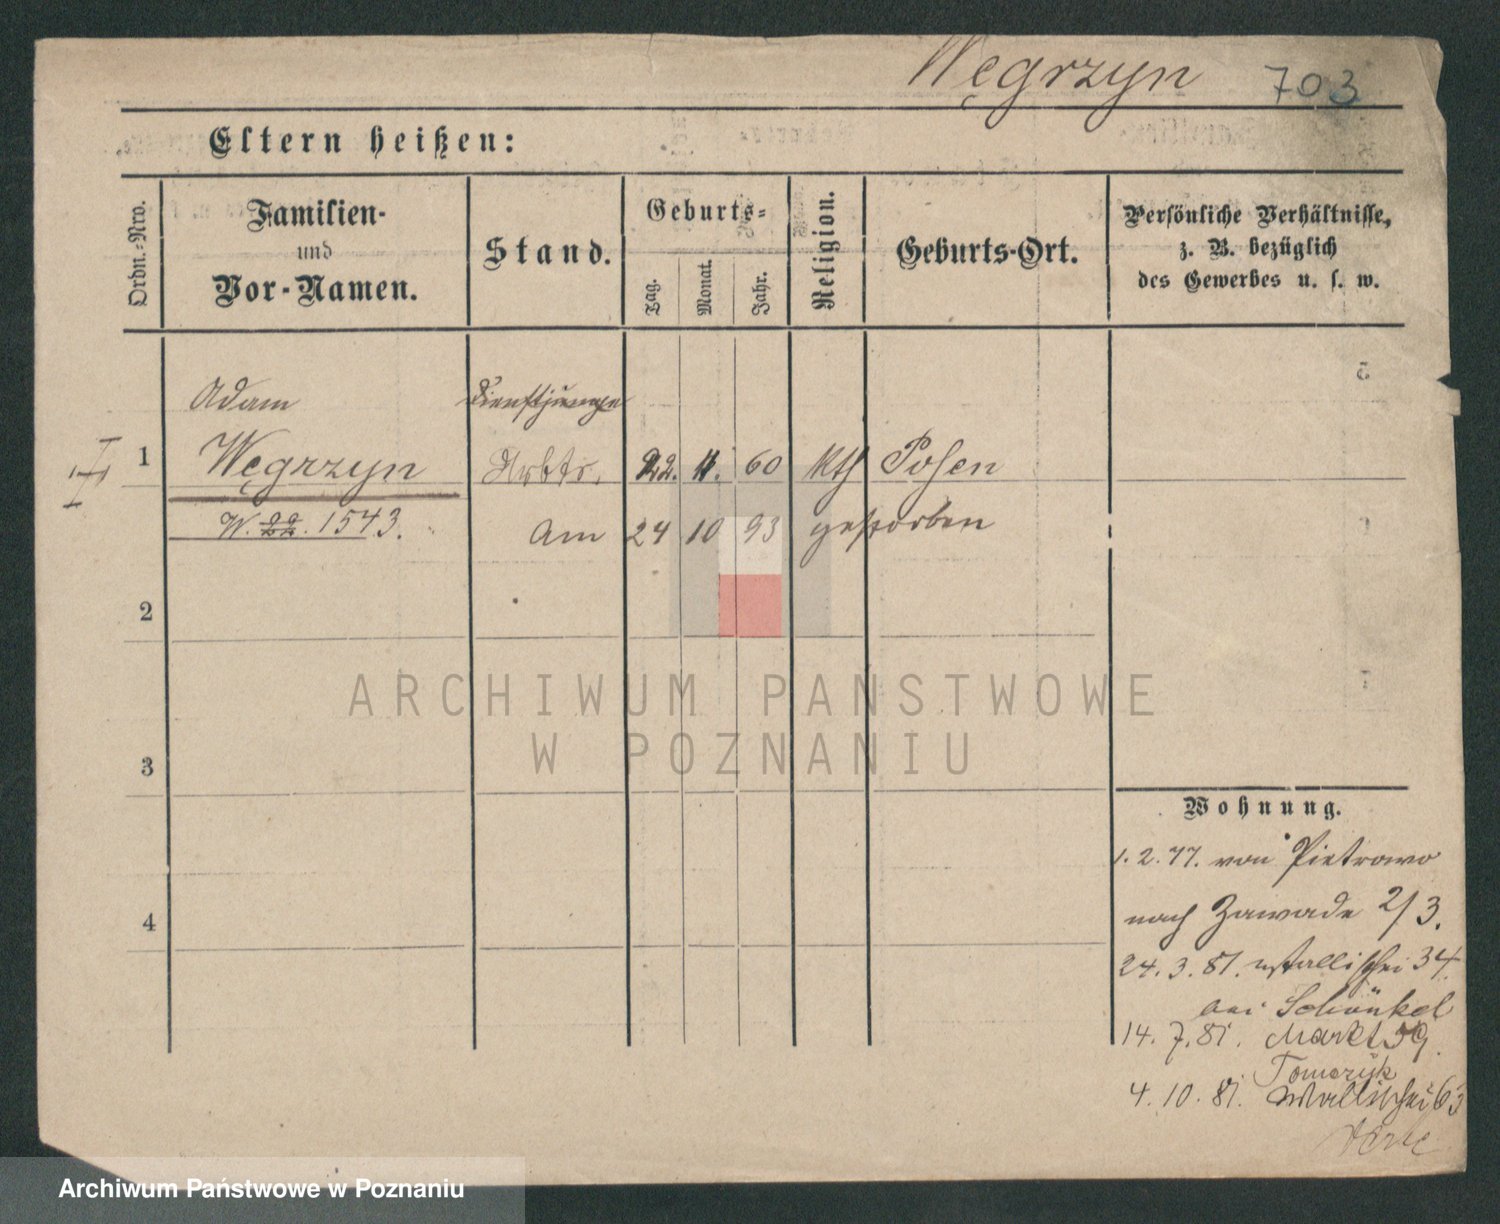 Węgrzyn 703
Eltern heißen:
Ordn.-Nro.
Familien-
und
Vor-Namen.
Stand.
Geburts-
Tag.
Monat.
Jahr.
Religion.
Geburts-Ort.
Persönliche Verhältnisse,
z. B. bezüglich
des Gewerbes u. s. w.
Adam Dienstjunge
1 Węgrzyn Arbtr. 22. 11. 60 kth Posen
W. 22. 1543. Am 24 10 93 gestorben
2
3
4
ARCHIWUM PAŃSTWOWE
W POZNANIU
Wohnung.
1. 2. 77. von Pietrowo
nach Zawade 2/3.
24. 3. 81. Wallischei 34
bei Schönkel
14. 7. 81. Markt 59.
4. 10. 81. Wallischei 63
Archiwum Państwowe w Poznaniu